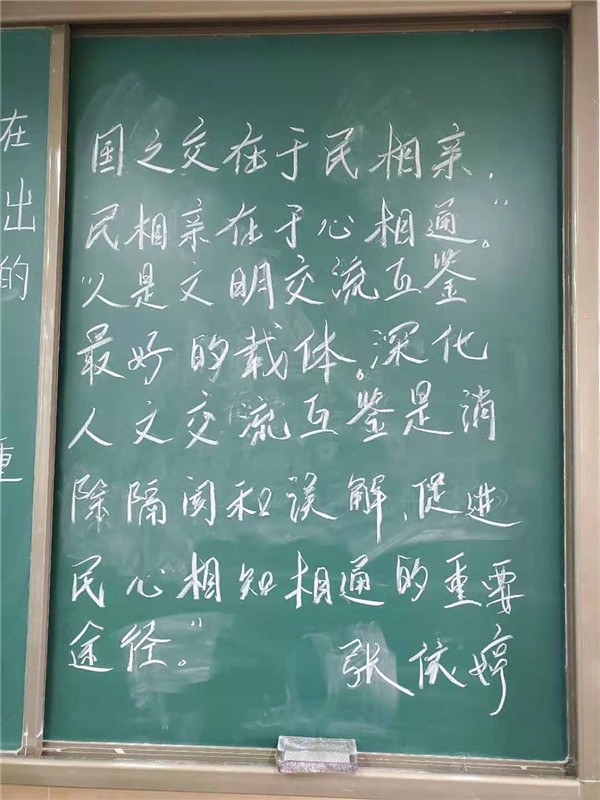 在
出
的
重
国之交在于民相亲,
民相亲在于心相通。"
"人是文明交流互鉴
最好的载体。深化
人文交流互鉴是消
除隔阂和误解、促进
民心相知相通的重要
途径。"
张依婷